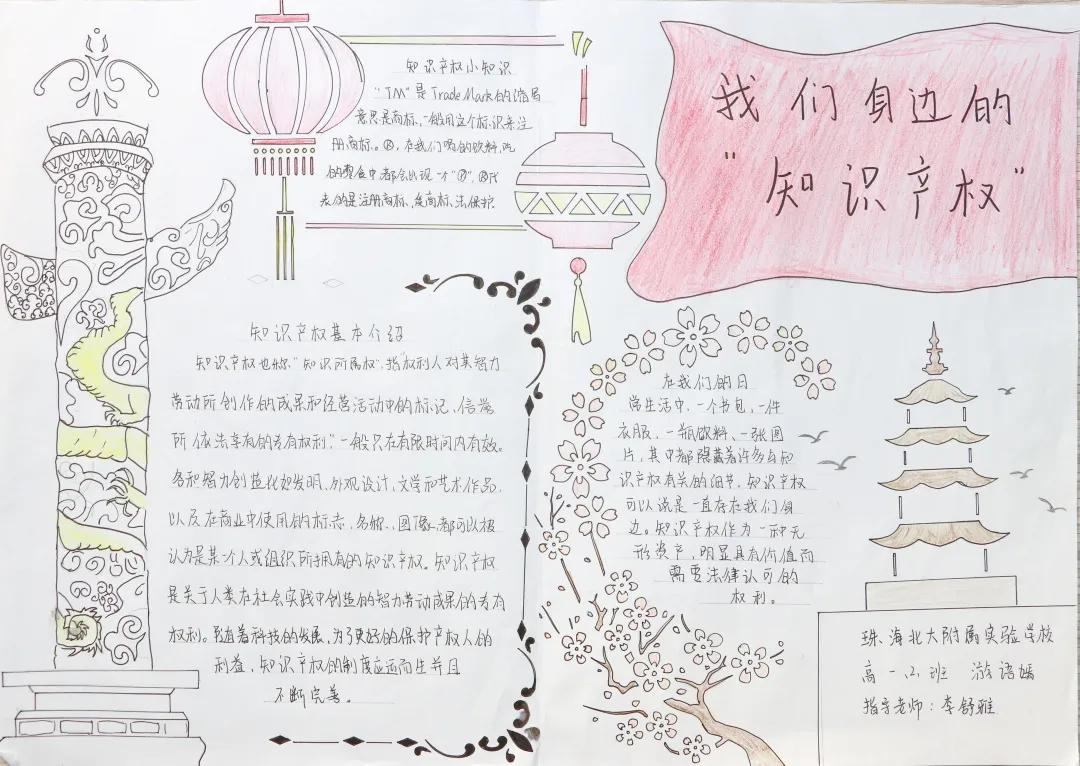 我们身边的
“知识产权”
知识产权小知识
“TM”是Trade Mark的缩写
意思是商标,一般用这个标识来注
册商标。®,在我们喝的饮料,吃
的零食中都会出现一个“®”,®代
表的是注册商标,受商标法保护.
知识产权基本介绍
知识产权也称“知识所属权”,指“权利人对其智力
劳动所创作的成果和经营活动中的标记、信誉
所依法享有的专有权利”,一般只在有限时间内有效。
各种智力创造比如发明、外观设计、文学和艺术作品,
以及在商业中使用的标志、名称、图像,都可以被
认为是某个人或组织所拥有的知识产权。知识产权
是关于人类在社会实践中创造的智力劳动成果的专有
权利。随着科技的发展,为了更好的保护产权人的
利益,知识产权的制度应运而生并且
不断完善。
在我们的日
常生活中,一个书包,一件
衣服,一瓶饮料、一张图
片,其中都隐藏着许多与知
识产权有关的细节,知识产权
可以说是一直存在我们身
边。知识产权作为一种无
形资产,明显具有价值而
需要法律认可的
权利。
珠海北大附属实验学校
高一(2)班 语嫣
指导老师:李舒雅